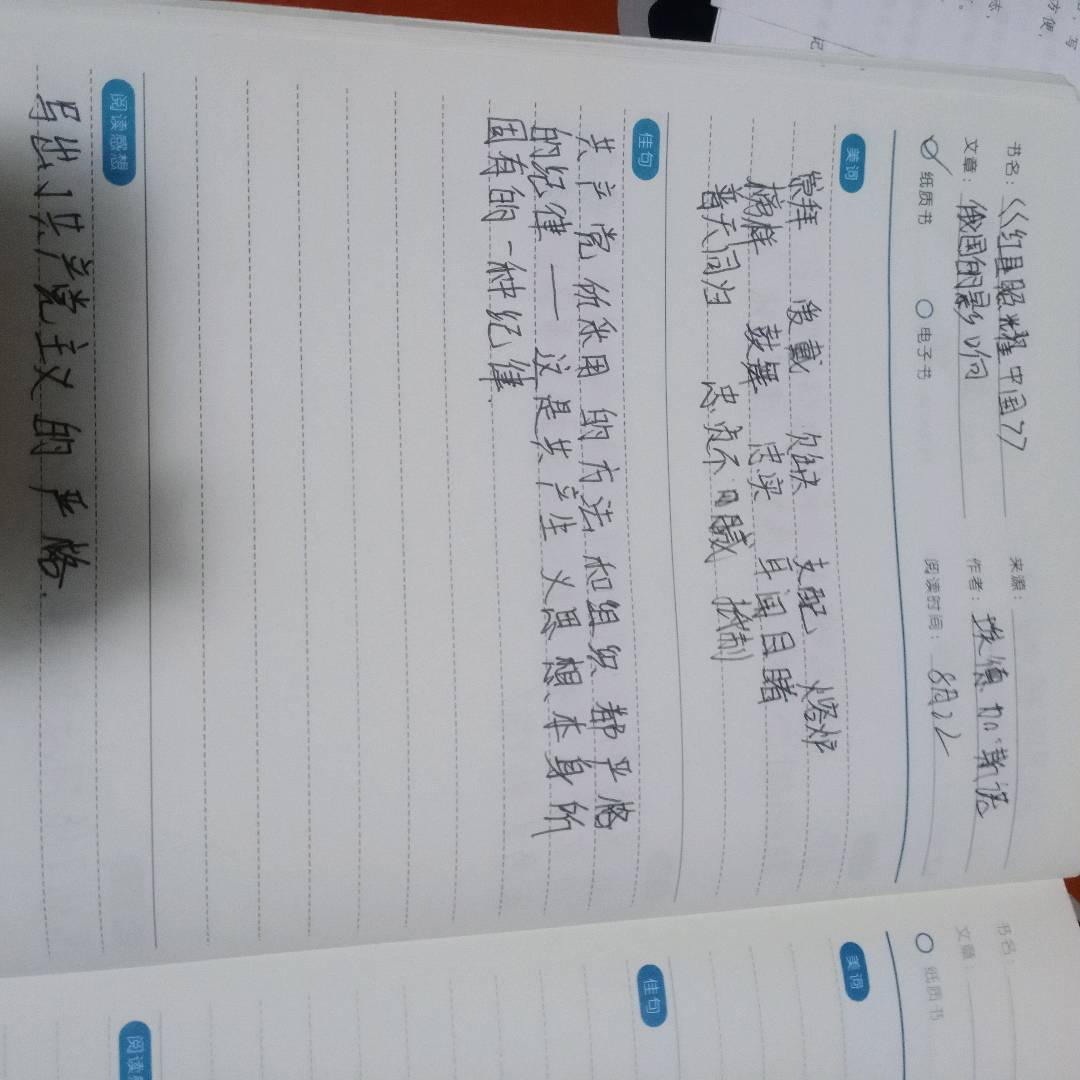 书名：《红星照耀中国》 来源：
文章：俄国的影响 作者：埃德加·斯诺
纸质书 电子书 阅读时间：8月22
美词
崇拜 爱戴 欠缺 支配 熔炉
榜样 鼓舞 忠实 耳闻目睹
普天同归 忠贞不 抵制
佳句
共产党所采用的方法和组织都严格
的纪律——这是共产主义思想本身所
固有的一种纪律.
阅读感想
写出了共产党主义的严格.
书名：
文章：
纸质书
美词
佳句
阅读